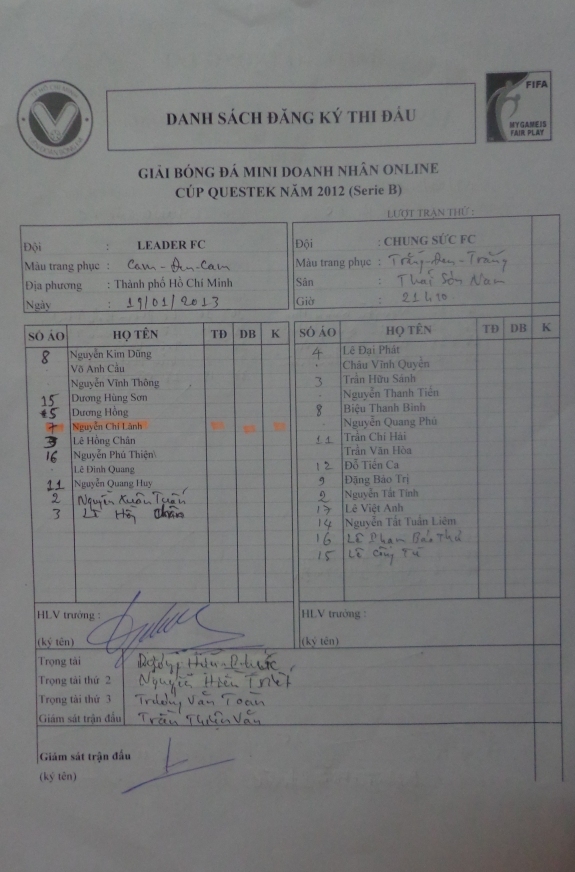 DANH SÁCH ĐĂNG KÝ THI ĐẤU
FIFA
MYGAMEIS
FAIR PLAY
GIẢI BÓNG ĐÁ MINI DOANH NHÂN ONLINE
CÚP QUESTEK NĂM 2012 (Serie B)
LƯỢT TRẬN THỨ :
Đội : LEADER FC
Màu trang phục : Cam - Đen - Cam
Địa phương : Thành phố Hồ Chí Minh
Ngày : 19/01/2013
Đội : CHUNG SỨC FC
Màu trang phục : Trắng - Đen - Trắng
Sân : Thái Sơn Nam
Giờ : 21h10
SỐ ÁO HỌ TÊN TĐ DB K
8 Nguyễn Kim Dũng
Võ Anh Cầu
Nguyễn Vĩnh Thông
15 Dương Hùng Sơn
5 Dương Hồng
7 Nguyễn Chí Lãnh
3 Lê Hồng Chân
16 Nguyễn Phú Thiện\
Lê Đình Quang
11 Nguyễn Quang Huy
2 Nguyễn Xuân Tuấn
3 Lê Hồng Chân
SỐ ÁO HỌ TÊN TĐ DB K
4 Lê Đại Phát
Châu Vĩnh Quyền
3 Trần Hữu Sánh
Nguyễn Thanh Tiến
8 Biệu Thanh Bình
Nguyễn Quang Phú
11 Trần Chí Hải
Trần Văn Hòa
12 Đỗ Tiến Ca
9 Đặng Bảo Trị
2 Nguyễn Tất Tính
17 Lê Việt Anh
14 Nguyễn Tất Tuấn Liêm
16 Lê Phạm Bảo Thứ
15 Lê Công Tú
HLV trưởng :
(ký tên)
HLV trưởng :
(ký tên)
Trọng tài
Trọng tài thứ 2 Nguyễn Hiền Triết
Trọng tài thứ 3 Trương Văn Toàn
Giám sát trận đấu Trần Thiện Văn
Giám sát trận đấu
(ký tên)